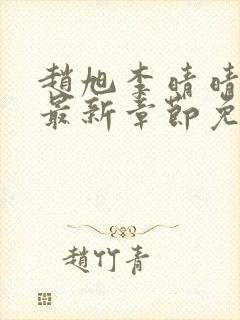 趙旭李晴晴
最新章節免
趙竹青